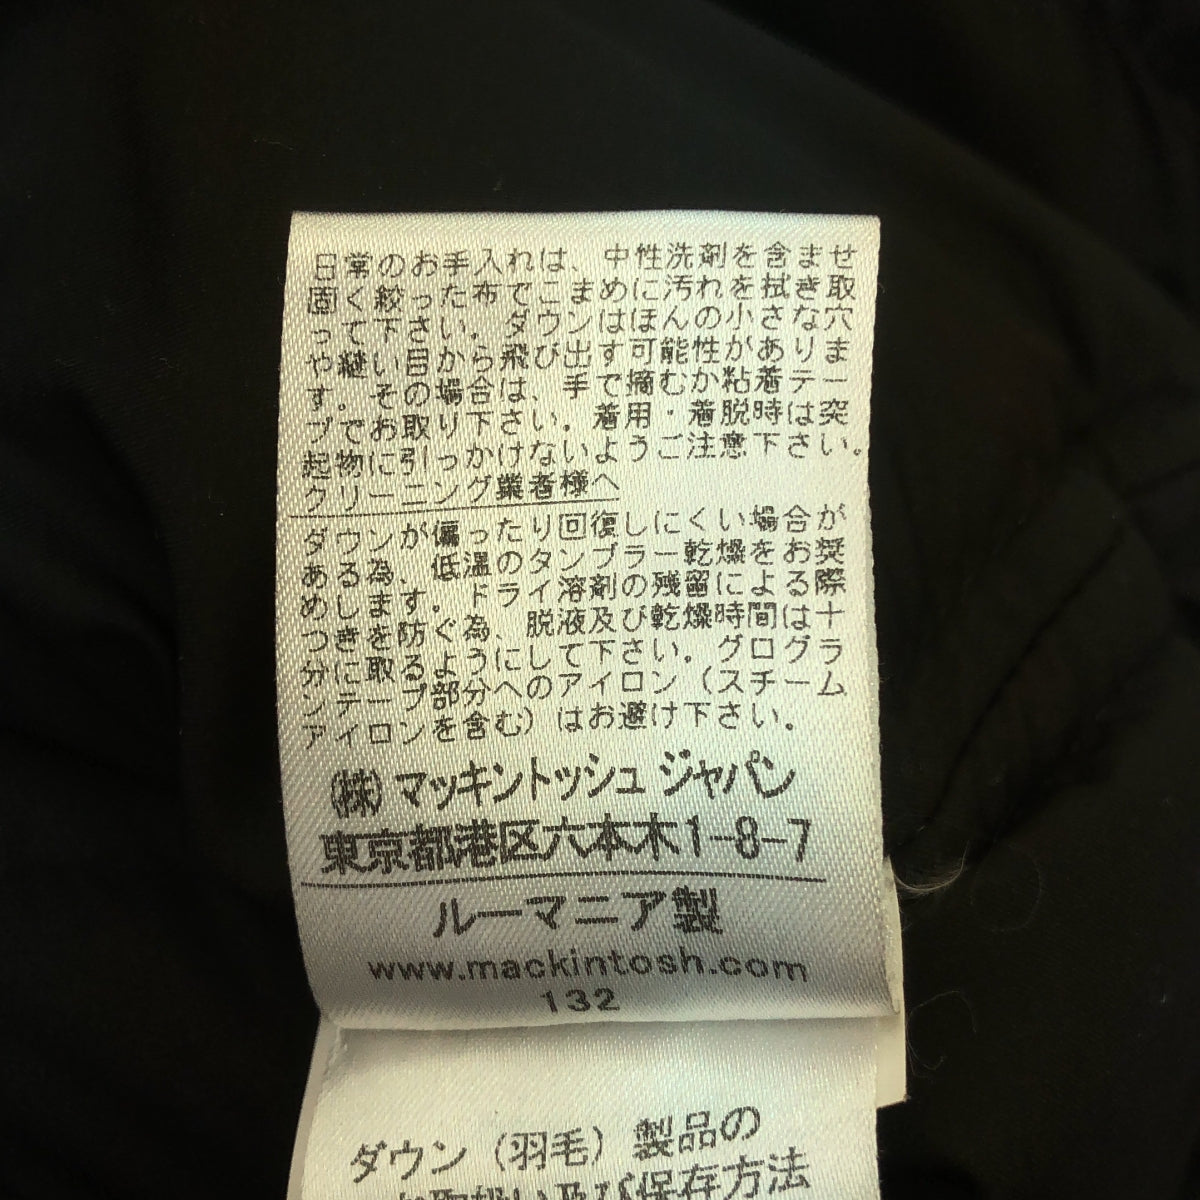 日常のお手入れは、中性洗剤を含ませ
固く絞った布でこまめに汚れを拭き取
って下さい。ダウンはほんの小さな穴
や縫い目から飛び出す可能性がありま
す。その場合は、手で摘むか粘着テー
プでお取り下さい。着用・着脱時は突
起物に引っかけないようご注意下さい。
クリーニング業者様へ
ダウンが偏ったり回復しにくい場合が
ある為、低温のタンブラー乾燥をお奨
めします。ドライ溶剤の残留による際
つきを防ぐ為、脱液及び乾燥時間は十
分に取るようにして下さい。グログラ
ンテープ部分へのアイロン（スチーム
アイロンを含む）はお避け下さい。
(株)マッキントッシュ ジャパン
東京都港区六本木1-8-7
ルーマニア製
www.mackintosh.com
132
ダウン（羽毛）製品の
お取扱い及び保存方法